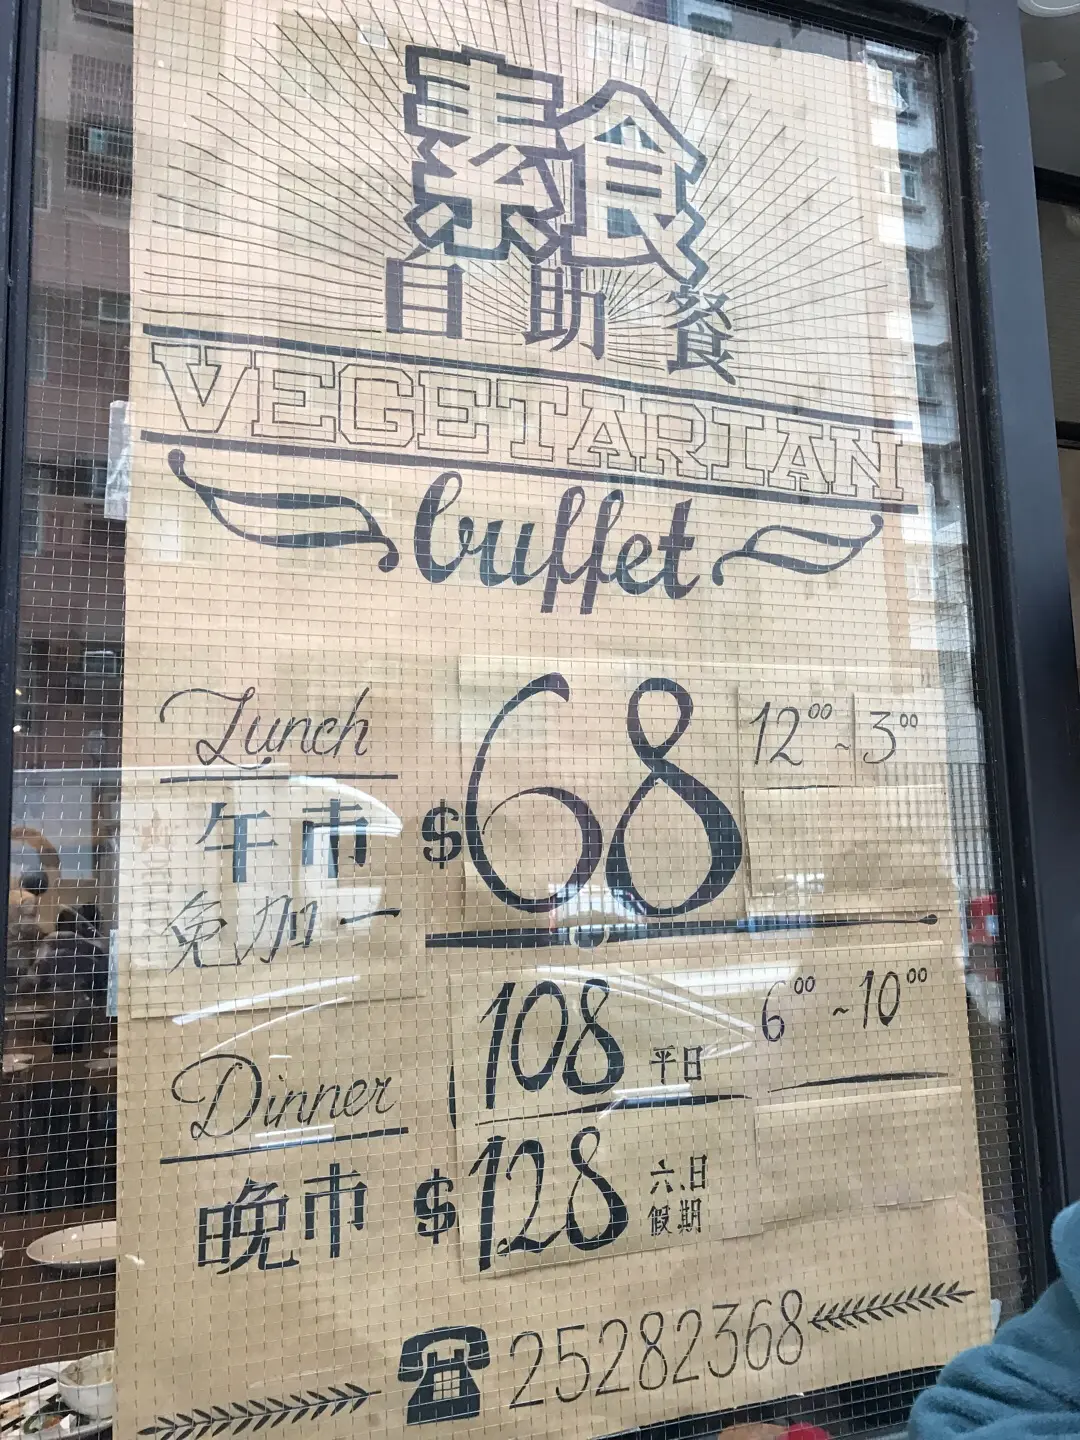 素食
自助餐
VEGETARIAN
buffet
Lunch
午市
免加一
$68
12⁰⁰ ~ 3⁰⁰
Dinner
晚市
108 平日
6⁰⁰ ~ 10⁰⁰
$128 六、日
假期
25282368